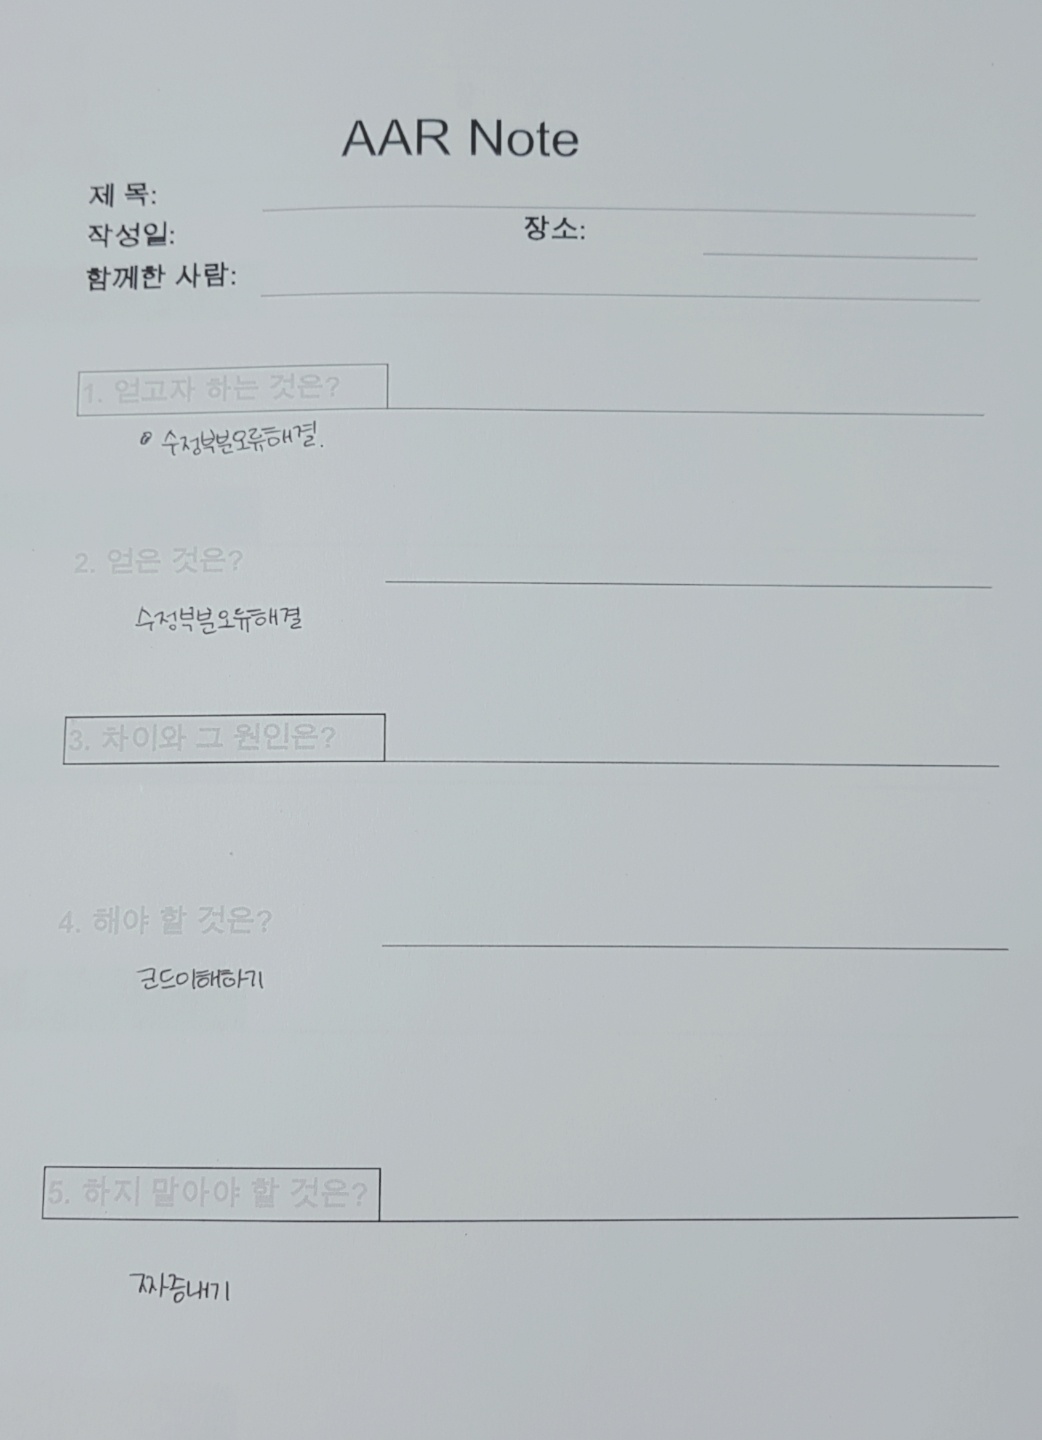 AAR Note
제 목:
작성일: 장소:
함께한 사람:
1. 얻고자 하는 것은?
수정부분오류해결.
2. 얻은 것은?
수정부분오류해결
3. 차이와 그 원인은?
4. 해야 할 것은?
코드이해하기
5. 하지 말아야 할 것은?
짜증내기